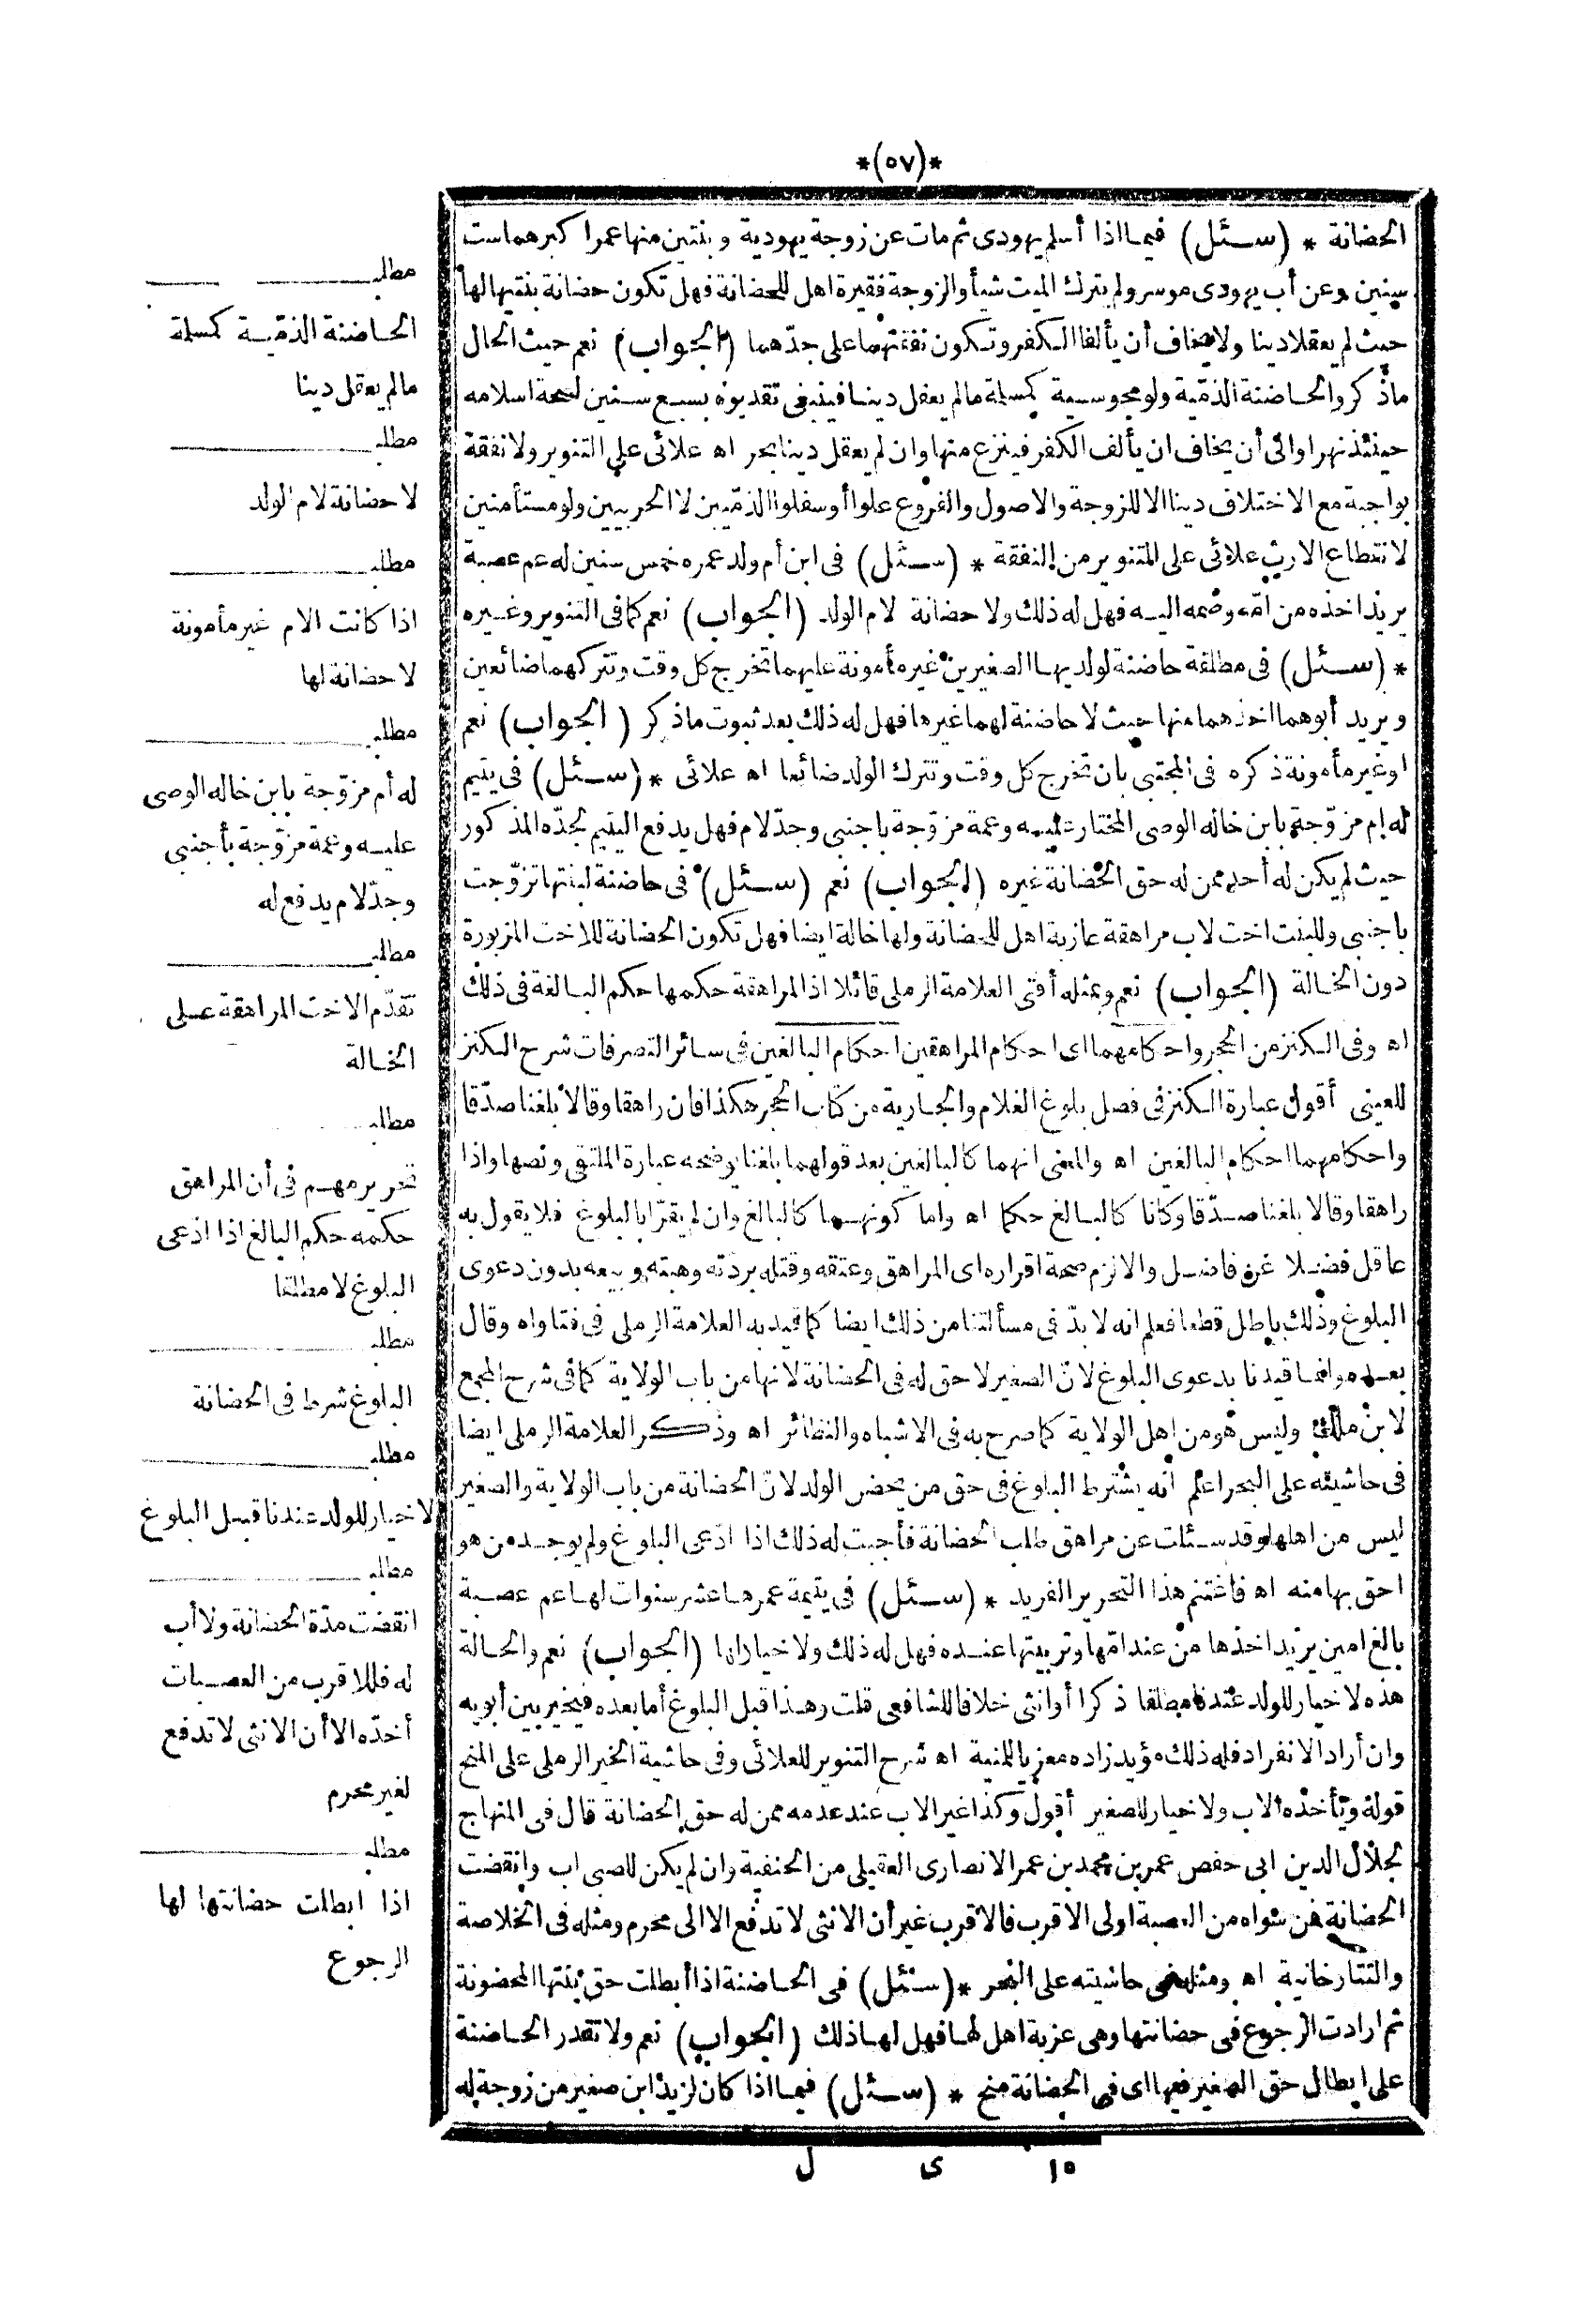 *(٥٧)*
الحضانة * (سئل) فيما اذا أسلم يهودى ثم مات عن زوجة يهودية وبنتين منها عمرا كبرهما ست
سنين وعن أب يهودى موسر ولم يترك الميت شيأ والزوجة فقيرة اهل للحضانة فهل تكون حضانة بنتيها لها
حيث لم يعقلا دينا ولا يخاف أن يألفا الكفر وتكون نفقتهما على جدّهما (الجواب) نعم حيث الحال
ماذكر والحاضنة الذمّية ولو مجوسية كمسلمة مالم يعقل دينا فينبغى تقديره بسبع سنين لصحة اسلامه
حينئذ نهر اوالى أن يخاف ان يألف الكفر فينزع منها وان لم يعقل دينا بحر اه علائى على التنوير ولا نفقة
بواجبة مع الاختلاف دينا الا للزوجة والاصول والفروع علوا أو سفلوا الذمّيين لا الحربيين ولو مستأمنين
لانقطاع الارث علائى على التنوير من النفقة * (سئل) فى ابن أم ولد عمره خمس سنين له عم عصبة
يريد اخذه من امّه وضمه اليه فهل له ذلك ولا حضانة لام الولد (الجواب) نعم كما فى التنوير وغيره
* (سئل) فى مطلقة حاضنة لولديها الصغيرين غير مأمونة عليهما تخرج كل وقت وتتركهما ضائعين
ويريد أبوهما اخذهما منها حيث لا حاضنة لهما غيرها فهل له ذلك بعد ثبوت ماذكر (الجواب) نعم
اوغير مأمونة ذكره فى المجتبى بان تخرج كل وقت وتترك الولد ضائعا اه علائى * (سئل) فى يتيم
له ام مزوّجة بابن خاله الوصى المختار عليه وعمة مزوّجة باجنبى وجدّ لام فهل يدفع اليتيم لجدّه المذكور
حيث لم يكن له أحد ممن له حق الحضانة غيره (الجواب) نعم (سئل) فى حاضنة لبنتها تزوّجت
باجنبى وللبنت اخت لاب مراهقة عازبة اهل للحضانة ولها خالة ايضا فهل تكون الحضانة للاخت المزبورة
دون الخالة (الجواب) نعم وبمثله أفتى العلامة الرملى قائلا اذ المراهقة حكمها حكم البالغة فى ذلك
اه وفى الكنز من الحجر واحكامهما اى احكام المراهقين احكام البالغين فى سائر التصرفات شرح الكنز
للعينى أقول عبارة الكنز فى فصل بلوغ الغلام والجارية من كتاب الحجر هكذا فان راهقا وقالا بلغنا صدّقا
واحكامهما احكام البالغين اه والمعنى انهما كالبالغين بعد قولهما بلغنا يوضحه عبارة الملتقى ونصها واذا
راهقا وقالا بلغنا صدّقا وكانا كالبالغ حكما اه واما كونهما كالبالغ وان لم يقرّا بالبلوغ فلا يقول به
عاقل فضلا عن فاضل والا لزم صحة اقراره اى المراهق وعتقه وقتله بردته وهبته وبيعه بدون دعوى
البلوغ وذلك باطل قطعا فعلم انه لا بدّ فى مسألتنا من ذلك ايضا كما قيد به العلامة الرملى فى فتاواه وقال
بعده وانما قيدنا بدعوى البلوغ لانّ الصغير لا حق له فى الحضانة لانها من باب الولاية كما فى شرح المجمع
لابن ملك وليس هو من اهل الولاية كما صرح به فى الاشباه والنظائر اه وذكر العلامة الرملى ايضا
فى حاشيته على البحر اعلم انه يشترط البلوغ فى حق من يحضن الولد لانّ الحضانة من باب الولاية والصغير
ليس من اهلها وقد سئلت عن مراهق طلب الحضانة فأجبت له ذلك اذا ادّعى البلوغ ولم يوجد من هو
احق بها منه اه فاغتنم هذا التحرير الفريد * (سئل) فى يتيمة عمرها عشر سنوات لها عم عصبة
بالغ امين يريد اخذها من عند امّها وتربيتها عنده فهل له ذلك ولا خيار لها (الجواب) نعم والحالة
هذه لا خيار للولد عندنا مطلقا ذكرا أوانثى خلافا للشافعى قلت وهذا قبل البلوغ أما بعده فيخير بين أبويه
وان أراد الانفراد فله ذلك مؤيد زاده معزيا للمنية اه شرح التنوير للعلائى وفى حاشية الخير الرملى على المنح
قوله ويأخذه الاب ولا خيار للصغير أقول وكذا غير الاب عند عدمه ممن له حق الحضانة قال فى المنهاج
لجلال الدين ابى حفص عمر بن محمد بن عمر الانصارى العقيلى من الحنفية وان لم يكن للصبى اب وانقضت
الحضانة فمن سواه من العصبة اولى الاقرب فالاقرب غير أن الانثى لا تدفع الا الى محرم ومثله فى الخلاصة
والتتارخانية اه ومثله فى حاشيته على البحر * (سئل) فى الحاضنة اذا أبطلت حق بنتها المحضونة
ثم ارادت الرجوع فى حضانتها وهى عزبة اهل لها فهل لها ذلك (الجواب) نعم ولا تقدر الحاضنة
على ابطال حق الصغير فيها اى فى الحضانة منح * (سئل) فيما اذا كان لزيد ابن صغير من زوجة له
مطلب
الحاضنة الذمّية كمسلمة
مالم يعقل دينا
مطلب
لا حضانة لام الولد
مطلب
اذا كانت الام غير مأمونة
لا حضانة لها
مطلب
له أم مزوّجة بابن خاله الوصى
عليه وعمة مزوّجة بأجنبى
وجدّ لام يدفع له
مطلب
تقدّم الاخت المراهقة على
الخالة
مطلب
تحرير مهم فى أن المراهق
حكمه حكم البالغ اذا ادّعى
البلوغ لا مطلقا
مطلب
البلوغ شرط فى الحضانة
مطلب
لا خيار للولد عندنا قبل البلوغ
مطلب
انقضت مدّة الحضانة ولا أب
له فللاقرب من العصبات
أخذه الا أن الانثى لا تدفع
لغير محرم
مطلب
اذا ابطلت حضانتها لها
الرجوع
١٥ ى ل